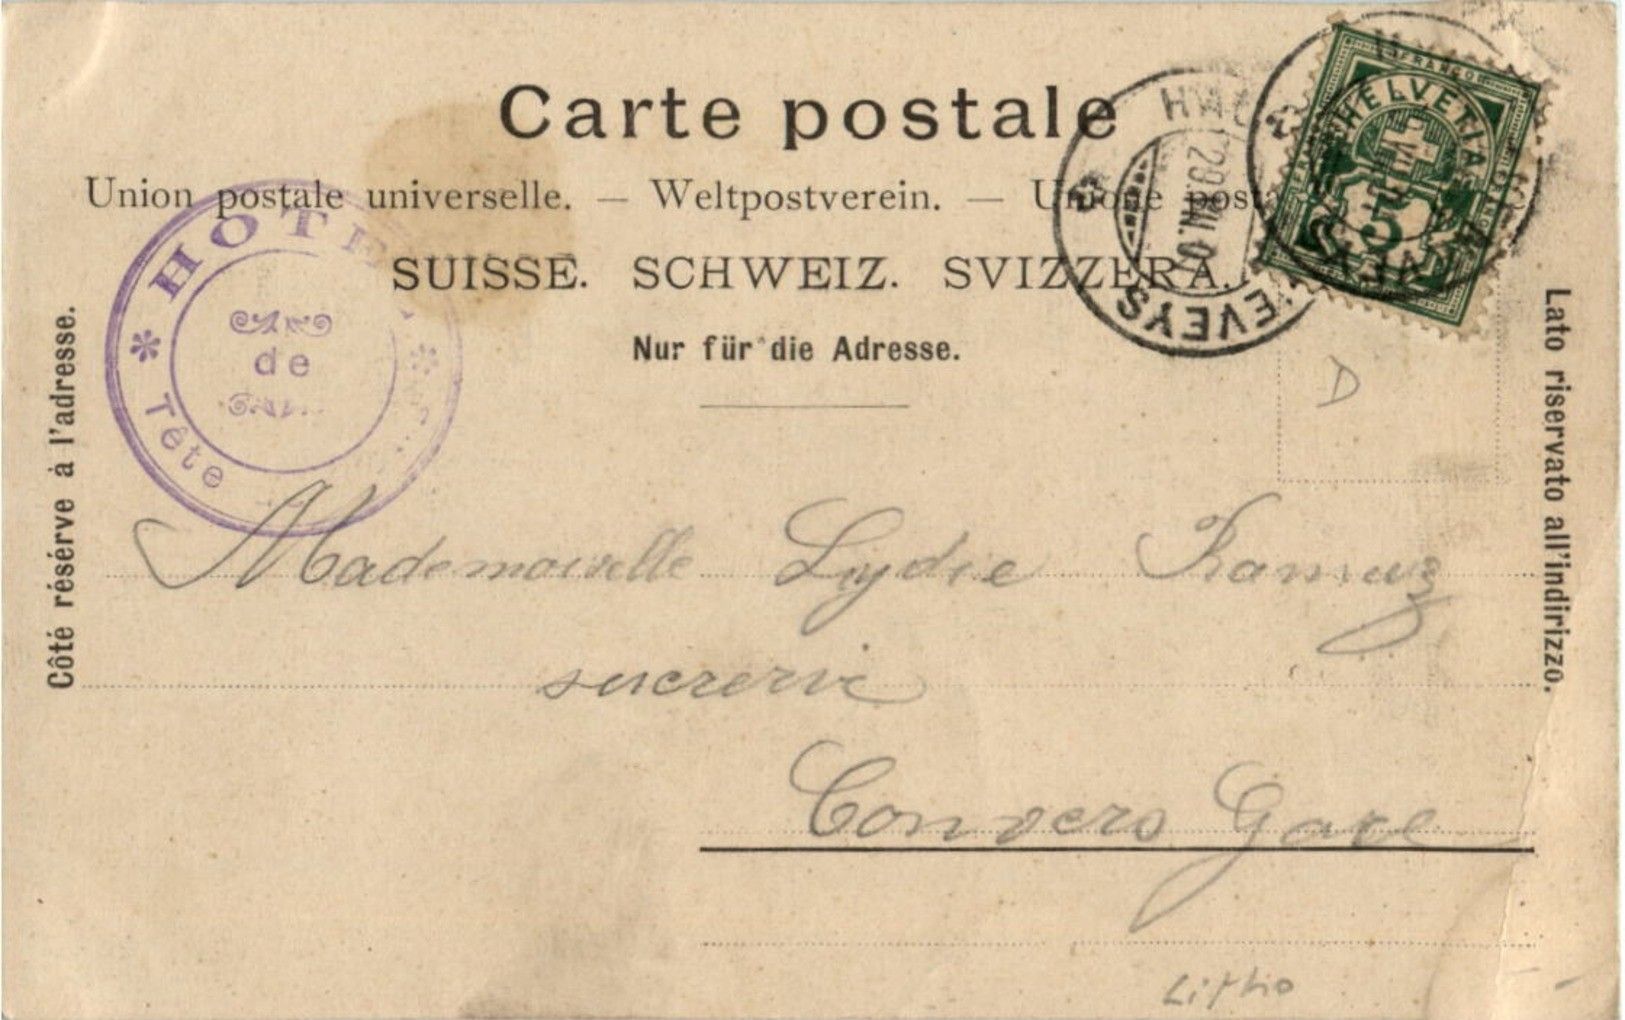 Carte postale
Union postale universelle. — Weltpostverein. — Unione post
SUISSE. SCHWEIZ. SVIZZERA.
Nur für die Adresse.
Côté résérve à l'adresse.
Lato riservato all'indirizzo.
HOTEL
de
Tête
29.VII.0
EVEYS
FRANCO
HELVETIA
5
D
Mademoiselle Lydie Ramuz
sucrerie
Convers Gare
Litho